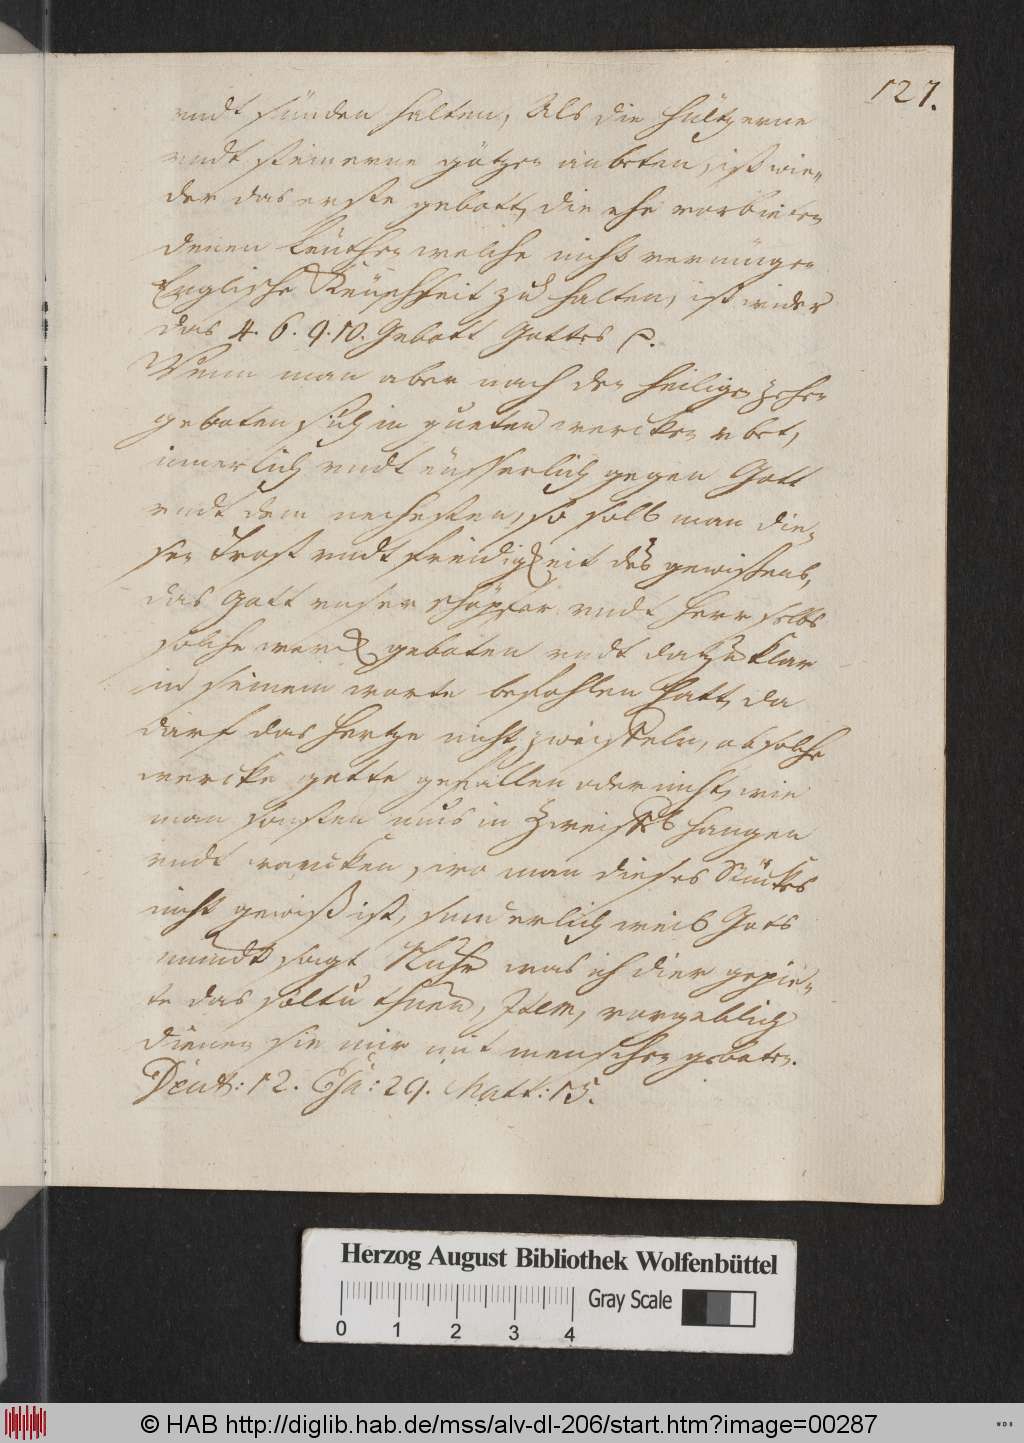 127.
undt sünden halten, Als die hültzerne
undt steinerne götzen anbeten, ist wie„
der das erste gebott, die ehe verbieten
denen leuthen welche nicht vermügen
Englische Keuschheit zu halten, ist wider
das 4. 6. 9. 10. Gebott Gottes
Wenn man aber nach den heiligen zehen
geboten sich in gueten wercken vbet,
innerlich undt eüsserlich gegen Gott
undt dem nechesten, so soll man die„
sen Trost undt freidigkeit des gewissens,
das Gott unser schöpfer undt herr selbs
solche werck geboten undt dazu klar
in seinem worte befohlen hatt, da
darf das hertze nicht zweiffeln, ob solche
wercke gotte gefallen oder nicht, wie
man sonsten mus in Zweiffel hangen
undt wancken, wo man dieses Stückes
nicht gewiß ist, sonderlich weil Gots
mundt sagt, was ich dier gepie„
te das soltu thuen, Item, vorgeblich
dienen sie mir mit menschen geboten.
Deut: 12. Esa: 29. Matt: 15.
Herzog August Bibliothek Wolfenbüttel
Gray Scale
0 1 2 3 4
© HAB http://diglib.hab.de/mss/alv-dl-206/start.htm?image=00287